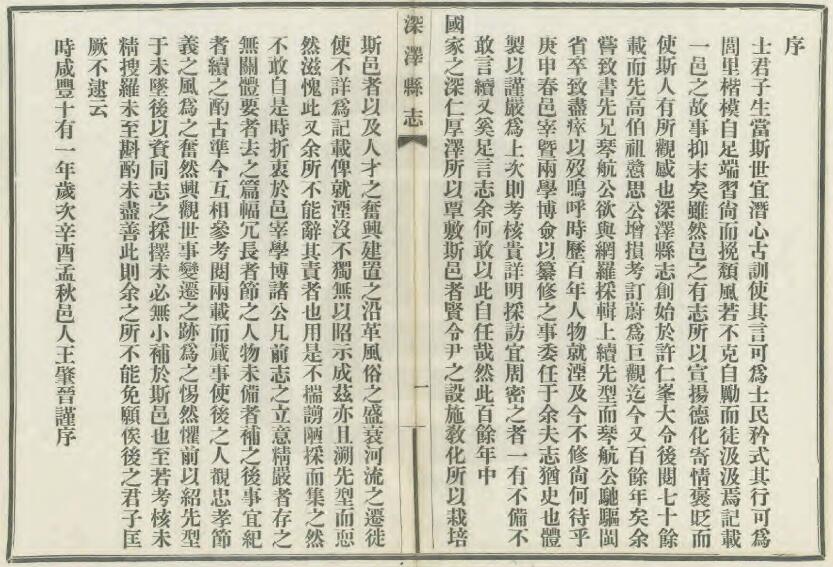 序
士君子生當斯世宜潛心古訓使其言可為士民矜式其行可為
閭里楷模自足端習尙而挽頽風若不克自勵而徒汲汲焉記載
一邑之故事抑末矣雖然邑之有志所以宣揚德化寄情褒貶而
使斯人有所觀感也深澤縣志創始於許仁峯大令後閱七十餘
載而先高伯祖慥思公增損考訂蔚為巨觀迄今又百餘年矣余
嘗致書先兄琴航公欲與網羅採輯上續先型而琴航公馳驅閩
省卒致盡瘁以歿嗚呼時歷百年人物就湮及今不修尙何待乎
庚申春邑宰曁兩學博僉以纂修之事委任于余夫志猶史也體
製以謹嚴為上次則考核貴詳明採訪宜周密之者一有不備不
敢言續又奚足言志余何敢以此自任哉然此百餘年中
國家之深仁厚澤所以覃敷斯邑者賢令尹之設施敎化所以栽培
深澤縣志
一
斯邑者以及人才之奮興建置之沿革風俗之盛衰河流之遷徙
使不詳為記載俾就湮沒不獨無以昭示成茲亦且溯先型而恧
然滋愧此又余所不能辭其責者也用是不揣謭陋採而集之然
不敢自是時折衷於邑宰學博諸公凡前志之立意精嚴者存之
無關體要者去之篇幅冗長者節之人物未備者補之後事宜紀
者續之酌古準今互相參考閱兩載而蕆事使後之人覩忠孝節
義之風為之奮然興觀世事變遷之跡為之惕然懼前以紹先型
于未墜後以資同志之採擇未必無小補於斯邑也至若考核未
精搜羅未至斟酌未盡善此則余之所不能免願俟後之君子匡
厥不逮云
時咸豐十有一年歲次辛酉孟秋邑人王肇晉謹序